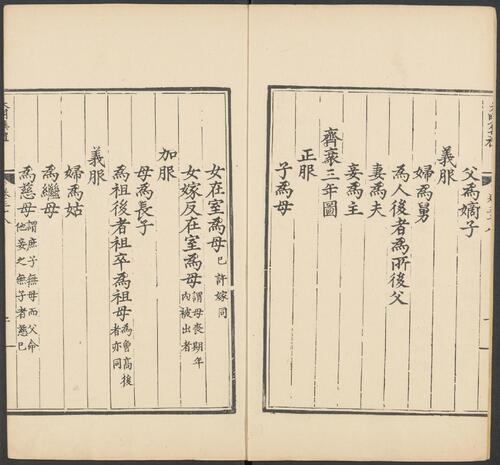 父爲嫡子
義服
婦爲舅
爲人後者爲所後父
妻爲夫
妾爲主
齊衰三年圖
正服
子爲母
女在室爲母已許嫁同
女嫁反在室爲母謂母喪期年內被出者
加服
母爲長子
爲祖後者祖卒爲祖母爲曾高後者亦同
義服
婦爲姑
爲繼母
爲慈母謂庶子無母而父命他妾之無子者慈己